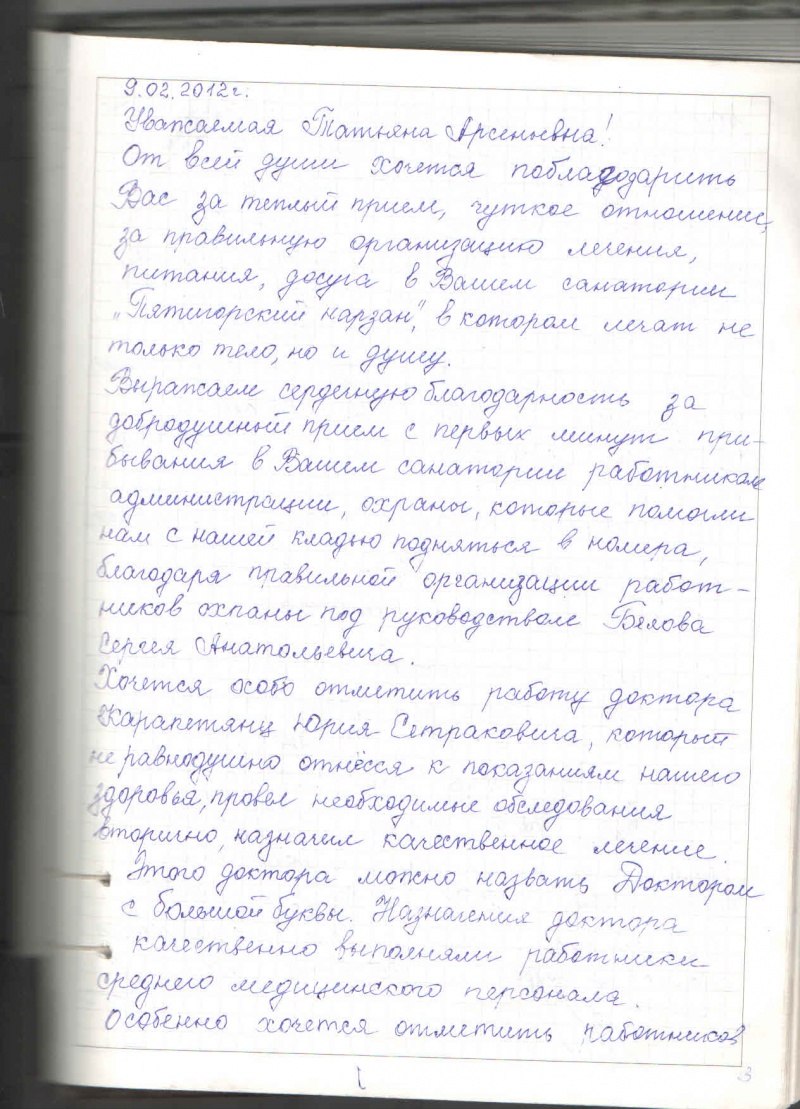 9.02.2012г.
Уважаемая Татьяна Арсеньевна!
От всей души хочется поблагодарить
Вас за теплый прием, чуткое отношение,
за правильную организацию лечения,
питания, досуга в Вашем санатории
„Пятигорский нарзан", в котором лечат не
только тело, но и душу.
Выражаем сердечную благодарность за
добродушный прием с первых минут при-
бывания в Вашем санатории работникам
администрации, охраны, которые помогли
нам с нашей кладью подняться в номера,
благодаря правильной организации работ-
ников охраны под руководством Бялова
Сергея Анатольевича.
Хочется особо отметить работу доктора
Карапетянц Юрия Сетраковича, который
не равнодушно отнёсся к показаниям нашего
здоровья, провел необходимые обследования
вторично, назначил качественное лечение.
Этого доктора можно назвать Доктором
с большой буквы. Назначения доктора
качественно выполняли работники
среднего медицинского персонала.
Особенно хочется отметить работников
3